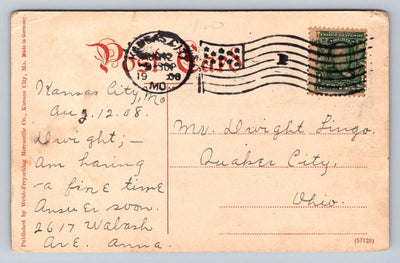 Post Card
KANSAS CITY
1908
MO.
Kansas City, Mo
Aug. 12. 08.
Dwight; —
Am having
a fine time
Answer soon.
2617 Wabash
Ave. Anna.
Mr. Dwight Lingo
Quaker City,
Ohio.
Kansas City, Mo. Made in Germany.
Published by
Mercantile Co.,
(57128)